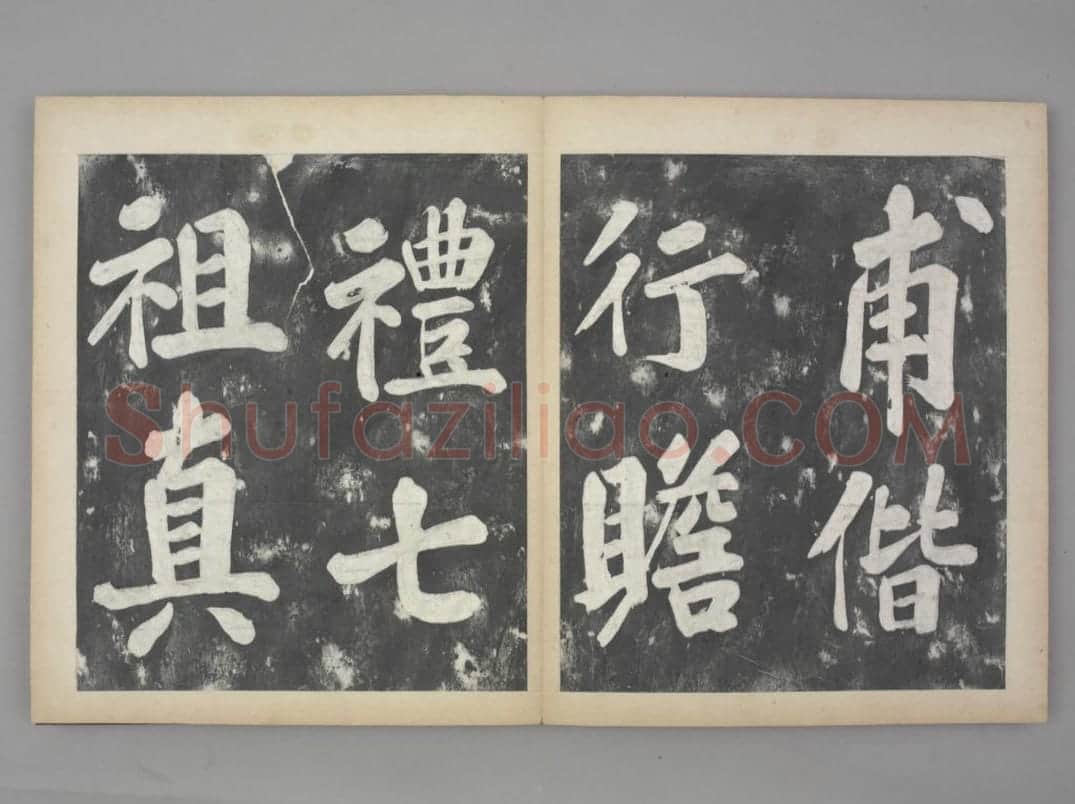 甫偕
行瞻
禮七
祖真
Shufaziliao.COM